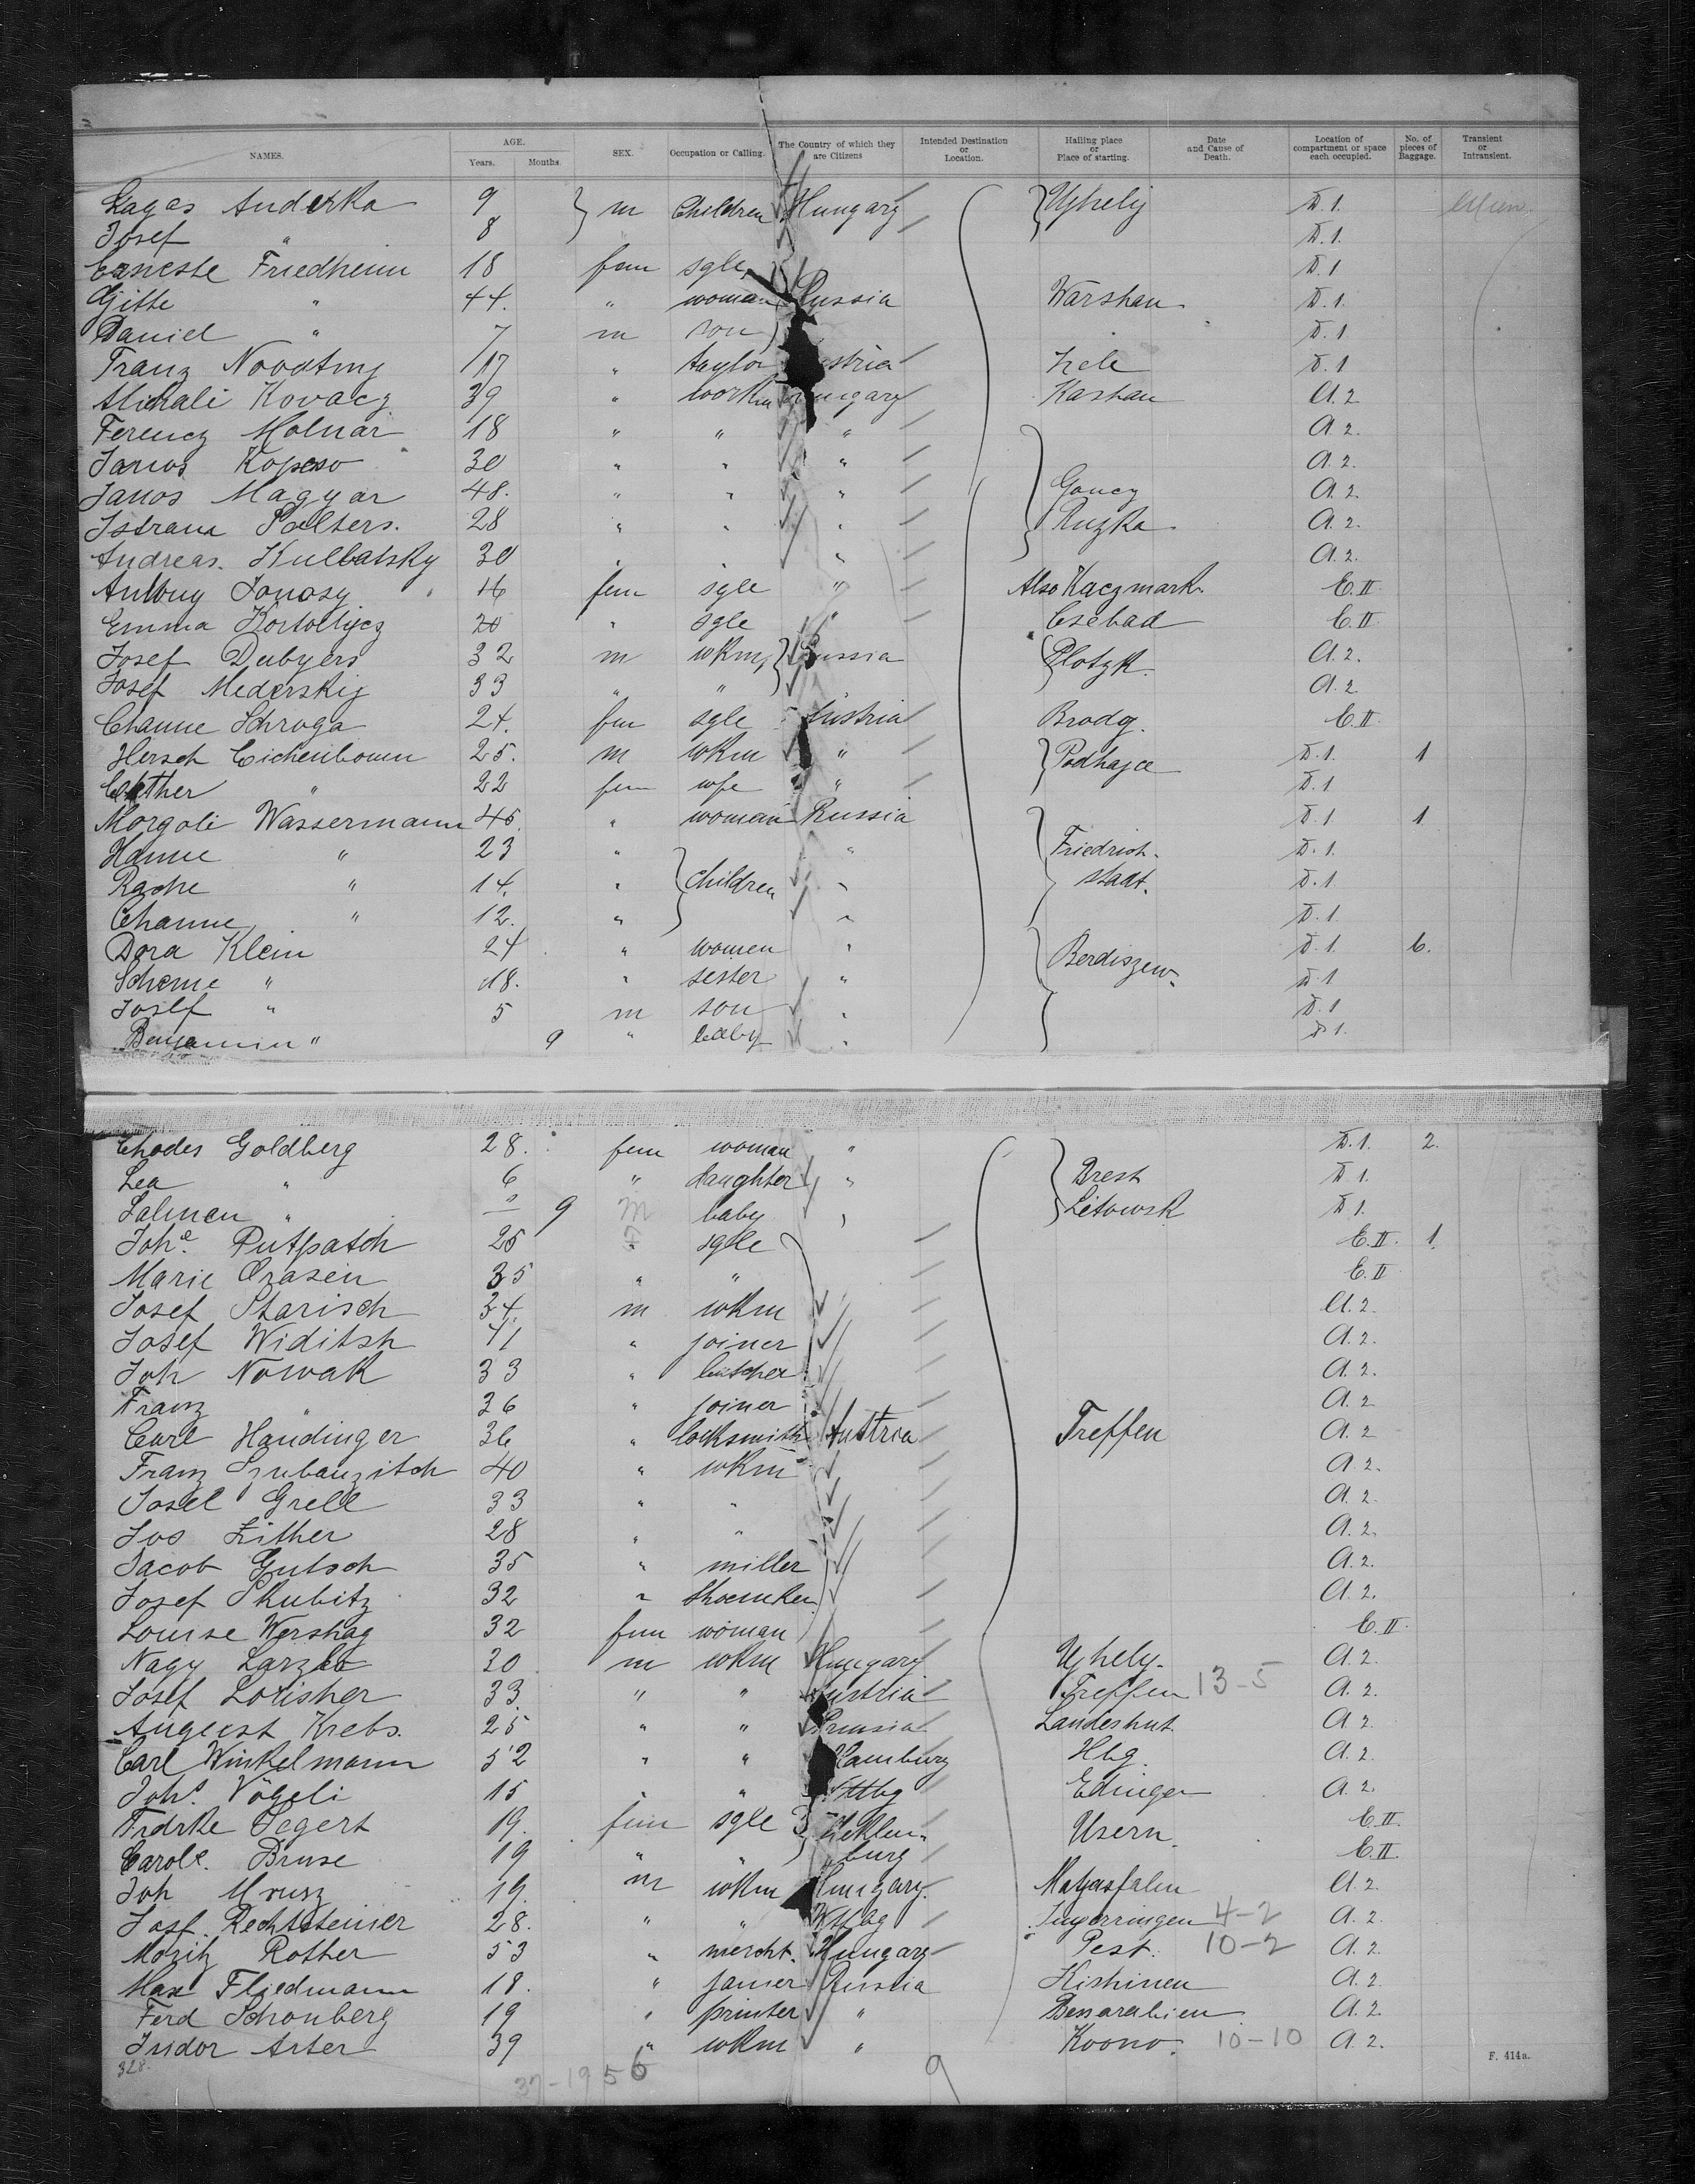 NAMES. AGE. Years. Months. SEX. Occupation or Calling. The Country of which they are Citizens Intended Destination or Location. Hailing place or Place of starting. Date and Cause of Death. Location of compartment or space each occupied. No. of pieces of Baggage. Transient or Intransient.
Lagas Anderka 9 m Children Hungary Ujhely D.1.
Josef " 8 D.1.
Erneste Friedheim 18 fem sgle D.1
Gitte " 44. " woman Russia Warshau D.1.
Daniel " 7 m son D.1
Franz 17 " taylor D.1
Mihali Kovacz 39 " workm Hungary Kashau A.2
Ferencz Molnar 18 " " " A.2.
Janos Kopcso 30 " " " A.2.
Janos Magyar 48. " " " Goncz A.2.
Istvan Polters. 28 " " " Ruzka A.2.
Andreas. Kullbatsky 30 " " A.2.
Janosy fem sgle " Also Kaczmark E.II
Emma 20 " sgle " Csebad E.II.
Josef Dubyers 32 m wkm, Russia Plotzk. A.2.
Josef Mederskij 33 " " A.2
Channe Schroga 24. fem sgle Austria Brody. E.II.
Hersch Eichenboum 25. m wkm " Podhajce D.1. 1
Esther " 22 fem wfe " D.1.
Morgoli Wassermann 45. " woman Russia D.1 1
Hanne " 23 " " Friedrich- D.1.
Rache " 14. " children " stadt. D.1.
Channe " 12. " " D.1.
Dora Klein 24 " women " Berdiszew. D.1. 6.
Scheme " 18. " sester " D.1
Josef " 5 m son " D.1
Benjamin " 9 " baby " D.1.
Chodes Goldberg 28. fem woman " D.1. 2.
Lea " 6 " daughter " Brest D.1.
Salmen " 9 m baby " Litowsk D.1.
Johe. Putpatch 25 " sgle E.II. 1.
Marie Orasen 35 " " E.II
Josef Starisch 34. m wkm A.2.
Josef Widitsh 41 " joiner A.2.
Joh Nowak 33 " butcher A.2.
Franz " 26 " joiner A.2
Carl Haudinger 36 " locksmith Austria Treffen A.2
Franz Szubanzitch 40 " wkm A.2.
Josef Grell 33 " " A.2.
Jos Zither 28 " " A.2.
Jacob Gutsch 35 " miller A.2.
Josef Skubitz 32 " Shoemker. A.2.
Louise Wershag 32 fem woman E.II.
Nagy Laszlo 20 m wkm Hungary Ujhely. A.2.
Josef Lorisher 33. " " Austria Treffen 13-5 A.2.
August Krebs. 25 " " Prussia Landeshut A.2.
Carl Winkelmann 52 " " Hamburg Hbg. A.2.
Johs. Vögeli 15 " " Wttbg Edingen A.2.
Frdrke Segert 19. fem sgle Meklen- Usern. E.II.
Carole. Bruse 19 " " burg E.II.
Joh Mrusz 19. m wkm Hungary. Matjasfalen A.2.
Josf. Rechtsteiner 28. " " Wttbg 4-2 A.2.
Moritz Rother 53 " mercht. Hungary Pest. 10-2 A.2.
Max Fliedmann 18. " Russia Kishinen A.2
Ferd Schonberg 19 " printer " Bessarabien A.2
Isidor Arter 39 " wkm " Koono. 10-10 A.2.
328. F. 414a.
37-1956 9